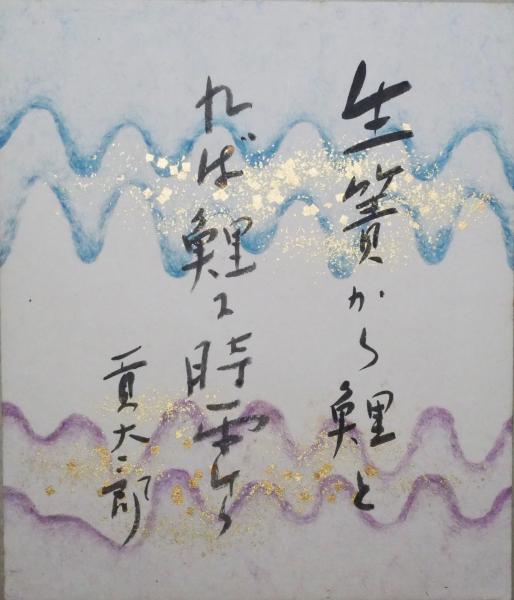 生簀から鯉と
れば鯉に時雨けり
貢太郎